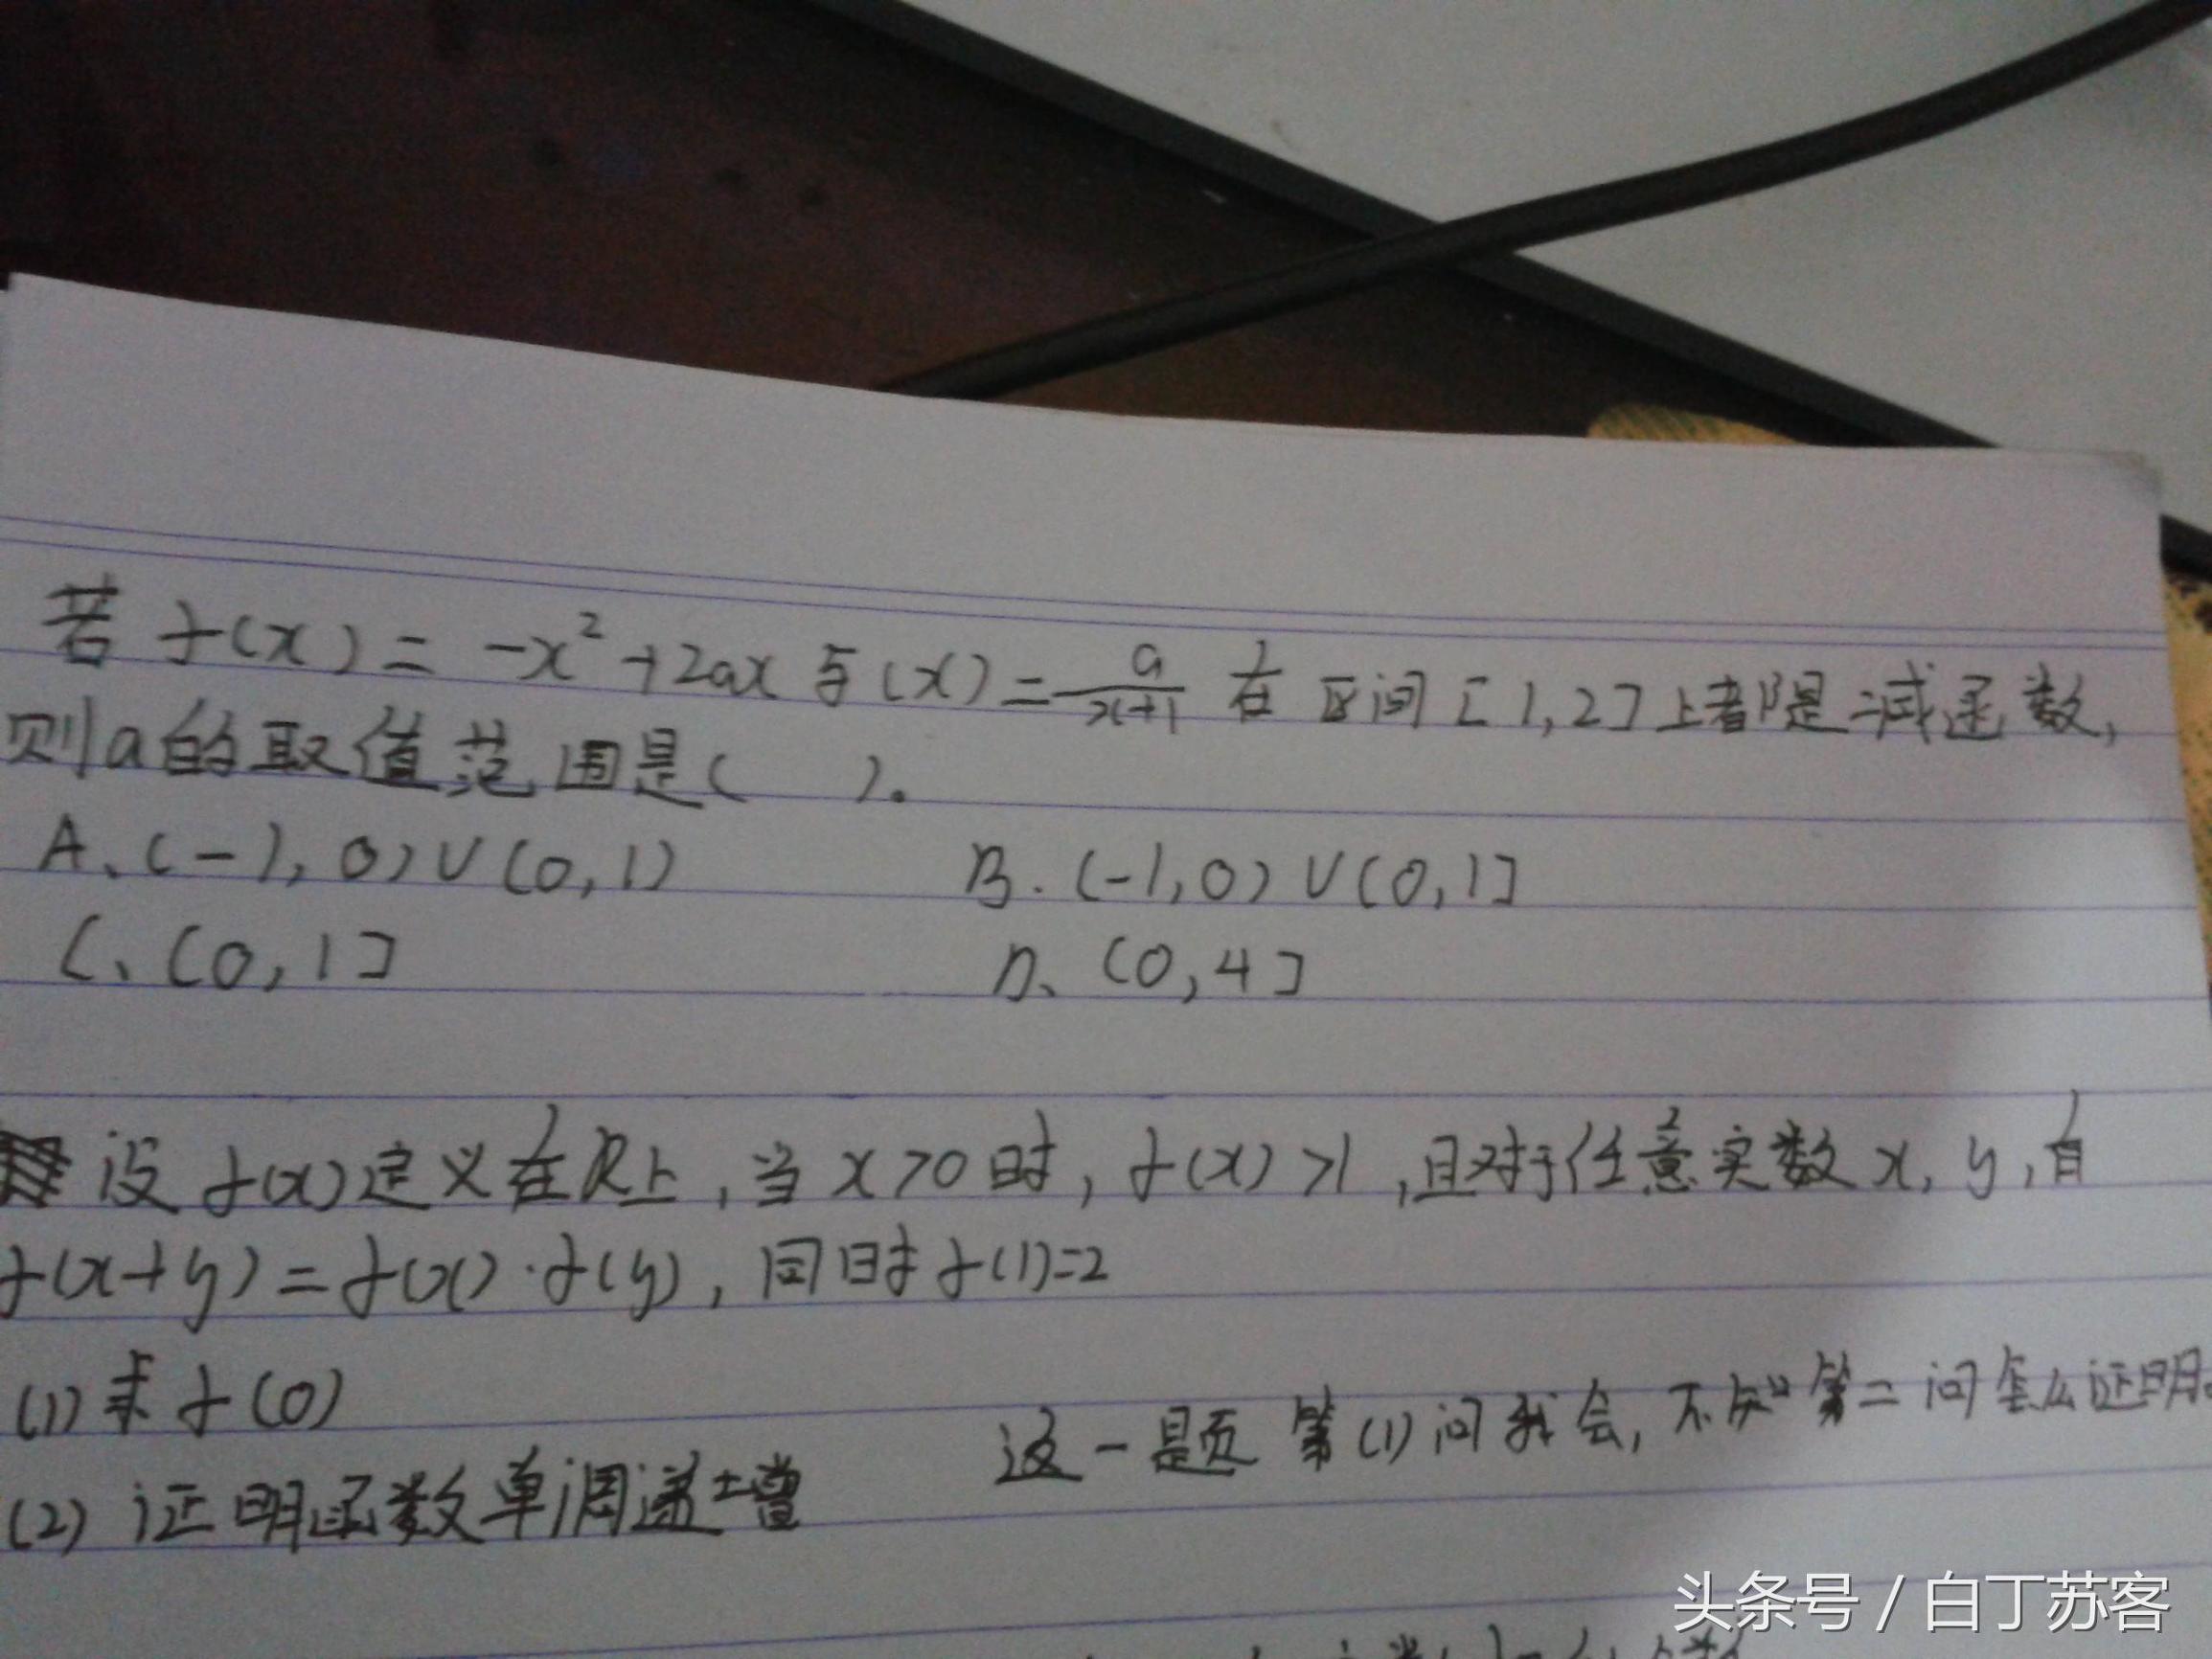 若 f(x) = -x²+2ax 与(x) = a/(x+1) 在区间[1,2]上都是减函数,
则a的取值范围是( )。
A、(-1,0)∪(0,1) B.(-1,0)∪(0,1]
C、(0,1] D、(0,4]
设f(x)定义在R上,当x>0时,f(x)>1,且对于任意实数x,y,有
f(x+y)=f(x)·f(y),同时f(1)=2
(1)求f(0)
这一题第(1)问我会,不知第二问怎么证明。
(2)证明函数单调递增
头条号/白丁苏客